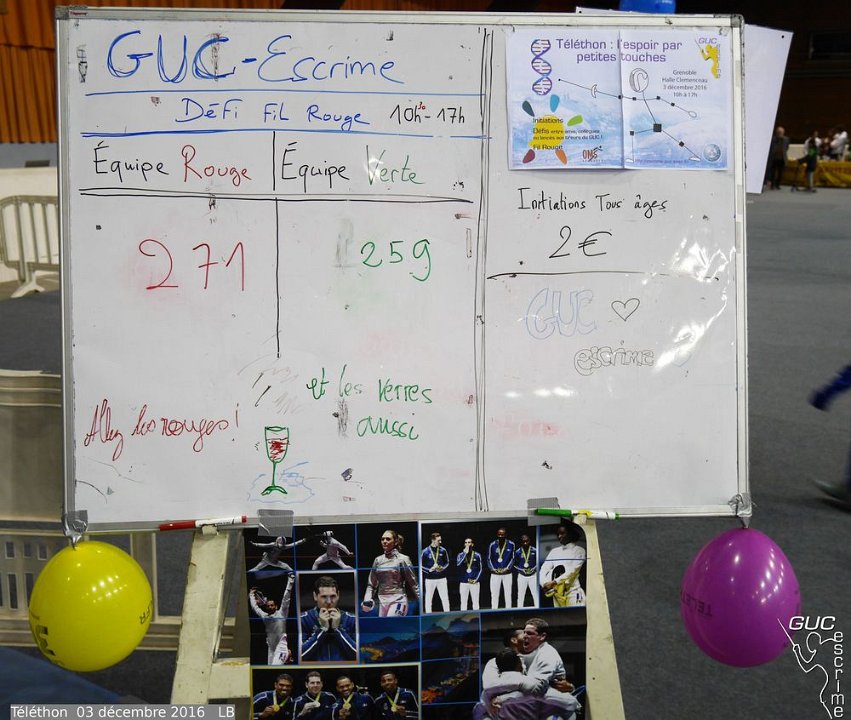 GUC-Escrime
DÉFI FIL ROUGE 10h30-17h
Équipe Rouge
Équipe Verte
271
259
Allez les rouges!
et les verres
aussi
Téléthon : l'espoir par
petites touches
GUC
Grenoble
Halle Clemenceau
3 décembre 2016
10h à 17h
Initiations
Défis entre amis, collègues
Fil Rouge
Initiations Tous âges
2€
GUC ♡
escrime
GUC
escrime
Téléthon 03 décembre 2016 LB